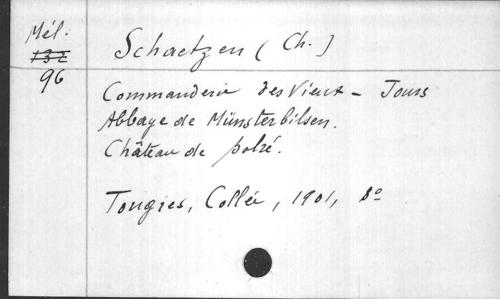 Mél.
132
96
Schaetzen (Ch.)
Commanderie des Vieux - Joncs
Abbaye de Münsterbilsen.
Château de
Tongres, Collée, 1901, 8º